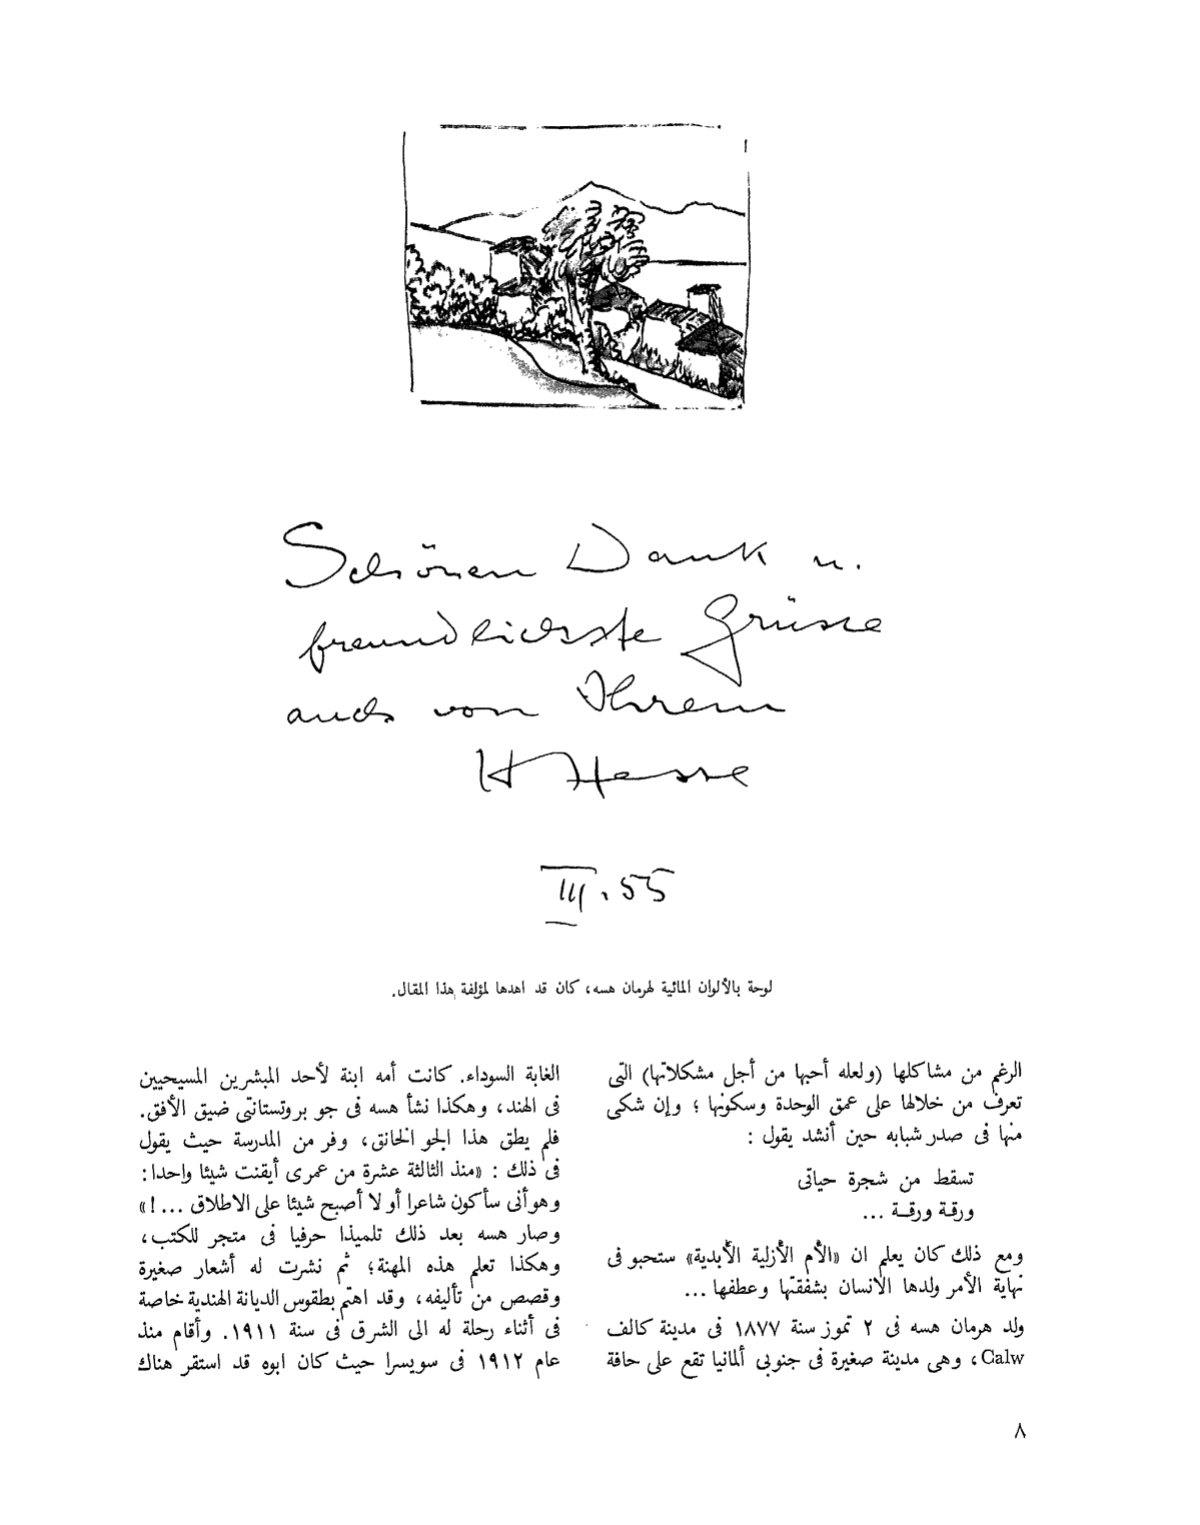 Schönen Dank u.
freundlichste Grüsse
auch von Ihrem
H Hesse
III. 55
لوحة بالألوان المائية لهرمان هسه، كان قد اهدها لمؤلفة هذا المقال.
الرغم من مشاكلها (ولعله أحبها من أجل مشكلاتها) التى
تعرف من خلالها على عمق الوحدة وسكونها ؛ وإن شكى
منها فى صدر شبابه حين أنشد يقول :
تسقط من شجرة حياتى
ورقة ورقة ...
ومع ذلك كان يعلم ان «الأم الأزلية الأبدية» ستحبو فى
نهاية الأمر ولدها الانسان بشفقتها وعطفها ...
ولد هرمان هسه فى ٢ تموز سنة ١٨٧٧ فى مدينة كالف
Calw، وهى مدينة صغيرة فى جنوبى ألمانيا تقع على حافة
الغابة السوداء. كانت أمه ابنة لأحد المبشرين المسيحيين
فى الهند، وهكذا نشأ هسه فى جو بروتستانتى ضيق الأفق.
فلم يطق هذا الجو الخانق، وفر من المدرسة حيث يقول
فى ذلك : «منذ الثالثة عشرة من عمرى أيقنت شيئا واحدا:
وهو أنى سأكون شاعرا أو لا أصبح شيئا على الاطلاق ...!»
وصار هسه بعد ذلك تلميذا حرفيا فى متجر للكتب،
وهكذا تعلم هذه المهنة؛ ثم نشرت له أشعار صغيرة
وقصص من تأليفه، وقد اهتم بطقوس الديانة الهندية خاصة
فى أثناء رحلة له الى الشرق فى سنة ١٩١١. وأقام منذ
عام ١٩١٢ فى سويسرا حيث كان ابوه قد استقر هناك
٨